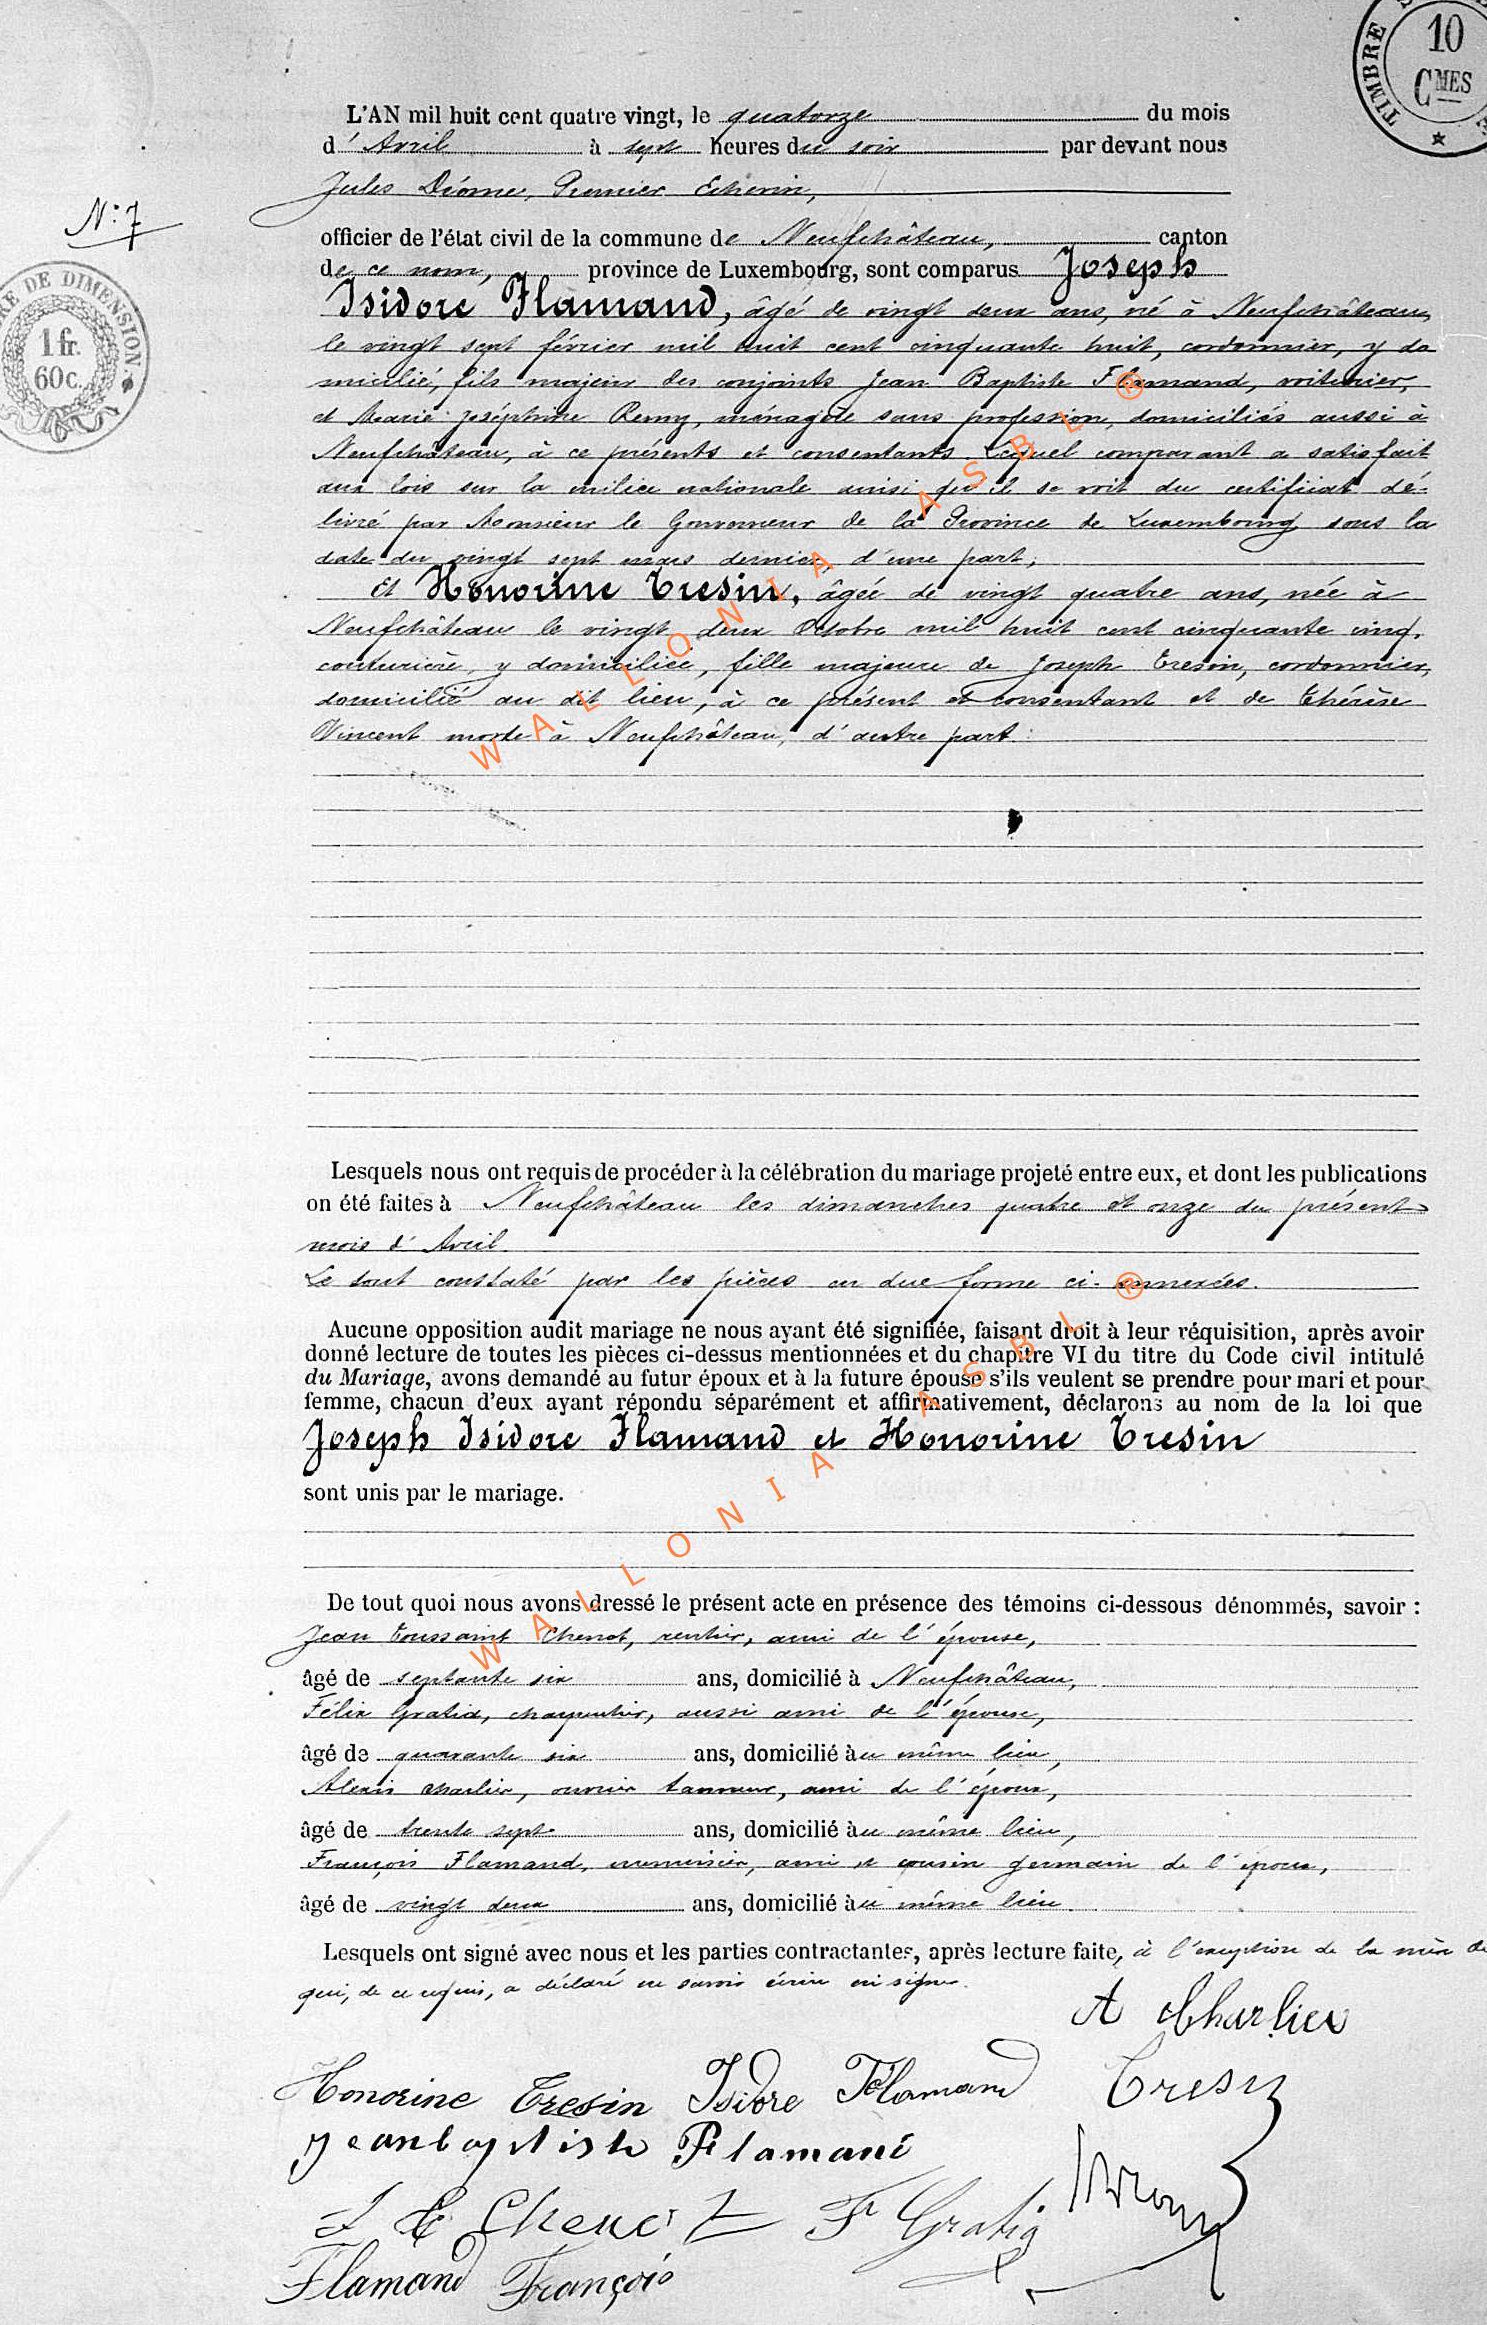 TIMBRE
10
CMES
L'AN mil huit cent quatre vingt, le quatorze du mois
d'Avril à sept heures du soir par devant nous
Jules Déome, Premier Echevin,
N° 7
officier de l'état civil de la commune de Neufchâteau, canton
de ce nom, province de Luxembourg, sont comparus Joseph
Isidore Flamand, âgé de vingt deux ans, né à Neufchâteau,
DE DIMENSION
1 fr.
60 c.
le vingt sept février mil huit cent cinquante huit, cordonnier, y do
micilié, fils majeur des conjoints Jean Baptiste Flamand, voiturier,
et Marie Joséphine Remy, ménagère sans profession, domiciliés aussi à
Neufchâteau, à ce présents et consentants. Lequel comparant a satisfait
aux lois sur la milice nationale ainsi qu'il se voit du certificat dé-
livré par Monsieur le Gouverneur de la Province de Luxembourg sous la
date du vingt sept mars dernier, d'une part;
Et Honorine Tresin, âgée de vingt quatre ans, née à
Neufchâteau le vingt deux Octobre mil huit cent cinquante cinq,
couturière, y domiciliée, fille majeure de Joseph Tresin, cordonnier,
domicilié au dit lieu, à ce présent et consentant et de Thérèse
Vincent morte à Neufchâteau, d'autre part.
WALLONIA ASBL ®
Lesquels nous ont requis de procéder à la célébration du mariage projeté entre eux, et dont les publications
on été faites à Neufchâteau les dimanches quatre et onze du présent
mois d'Avril.
Le tout constaté par les pièces en due forme ci-annexées.
Aucune opposition audit mariage ne nous ayant été signifiée, faisant droit à leur réquisition, après avoir
donné lecture de toutes les pièces ci-dessus mentionnées et du chapitre VI du titre du Code civil intitulé
du Mariage, avons demandé au futur époux et à la future épouse s'ils veulent se prendre pour mari et pour
femme, chacun d'eux ayant répondu séparément et affirmativement, déclarons au nom de la loi que
Joseph Isidore Flamand et Honorine Tresin
sont unis par le mariage.
WALLONIA ASBL ®
De tout quoi nous avons dressé le présent acte en présence des témoins ci-dessous dénommés, savoir :
Jean Toussaint Chenot, rentier, ami de l'épouse,
âgé de septante six ans, domicilié à Neufchâteau,
Félix Gratia, charpentier, aussi ami de l'épouse,
âgé de quarante six ans, domicilié au même lieu,
Alexis Charlier, ouvrier tanneur, ami de l'époux,
âgé de trente sept ans, domicilié au même lieu,
François Flamand, menuisier, ami et cousin germain de l'époux,
âgé de vingt deux ans, domicilié au même lieu.
Lesquels ont signé avec nous et les parties contractantes, après lecture faite, à l'exception de la mère de
qui, de ce requis, a déclaré ne savoir écrire ni signer.
A Charlier
Honorine Tresin Isidore Flamand Tresin
Jean baptiste Flamand
J T Chenot F Gratia
Flamand François